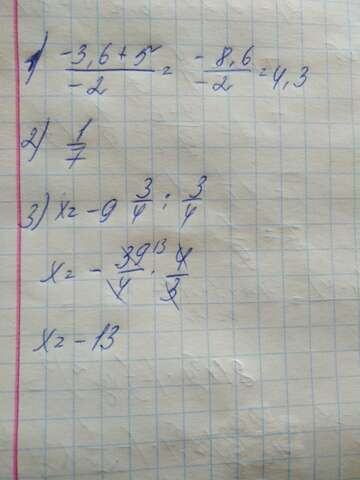 1) (-3,6+5)/(-2) = (-8,6)/(-2) = 4,3
2) 1/7
3) x = -9 3/4 : 3/4
x = - 39/4 13 · 4/3
x = -13